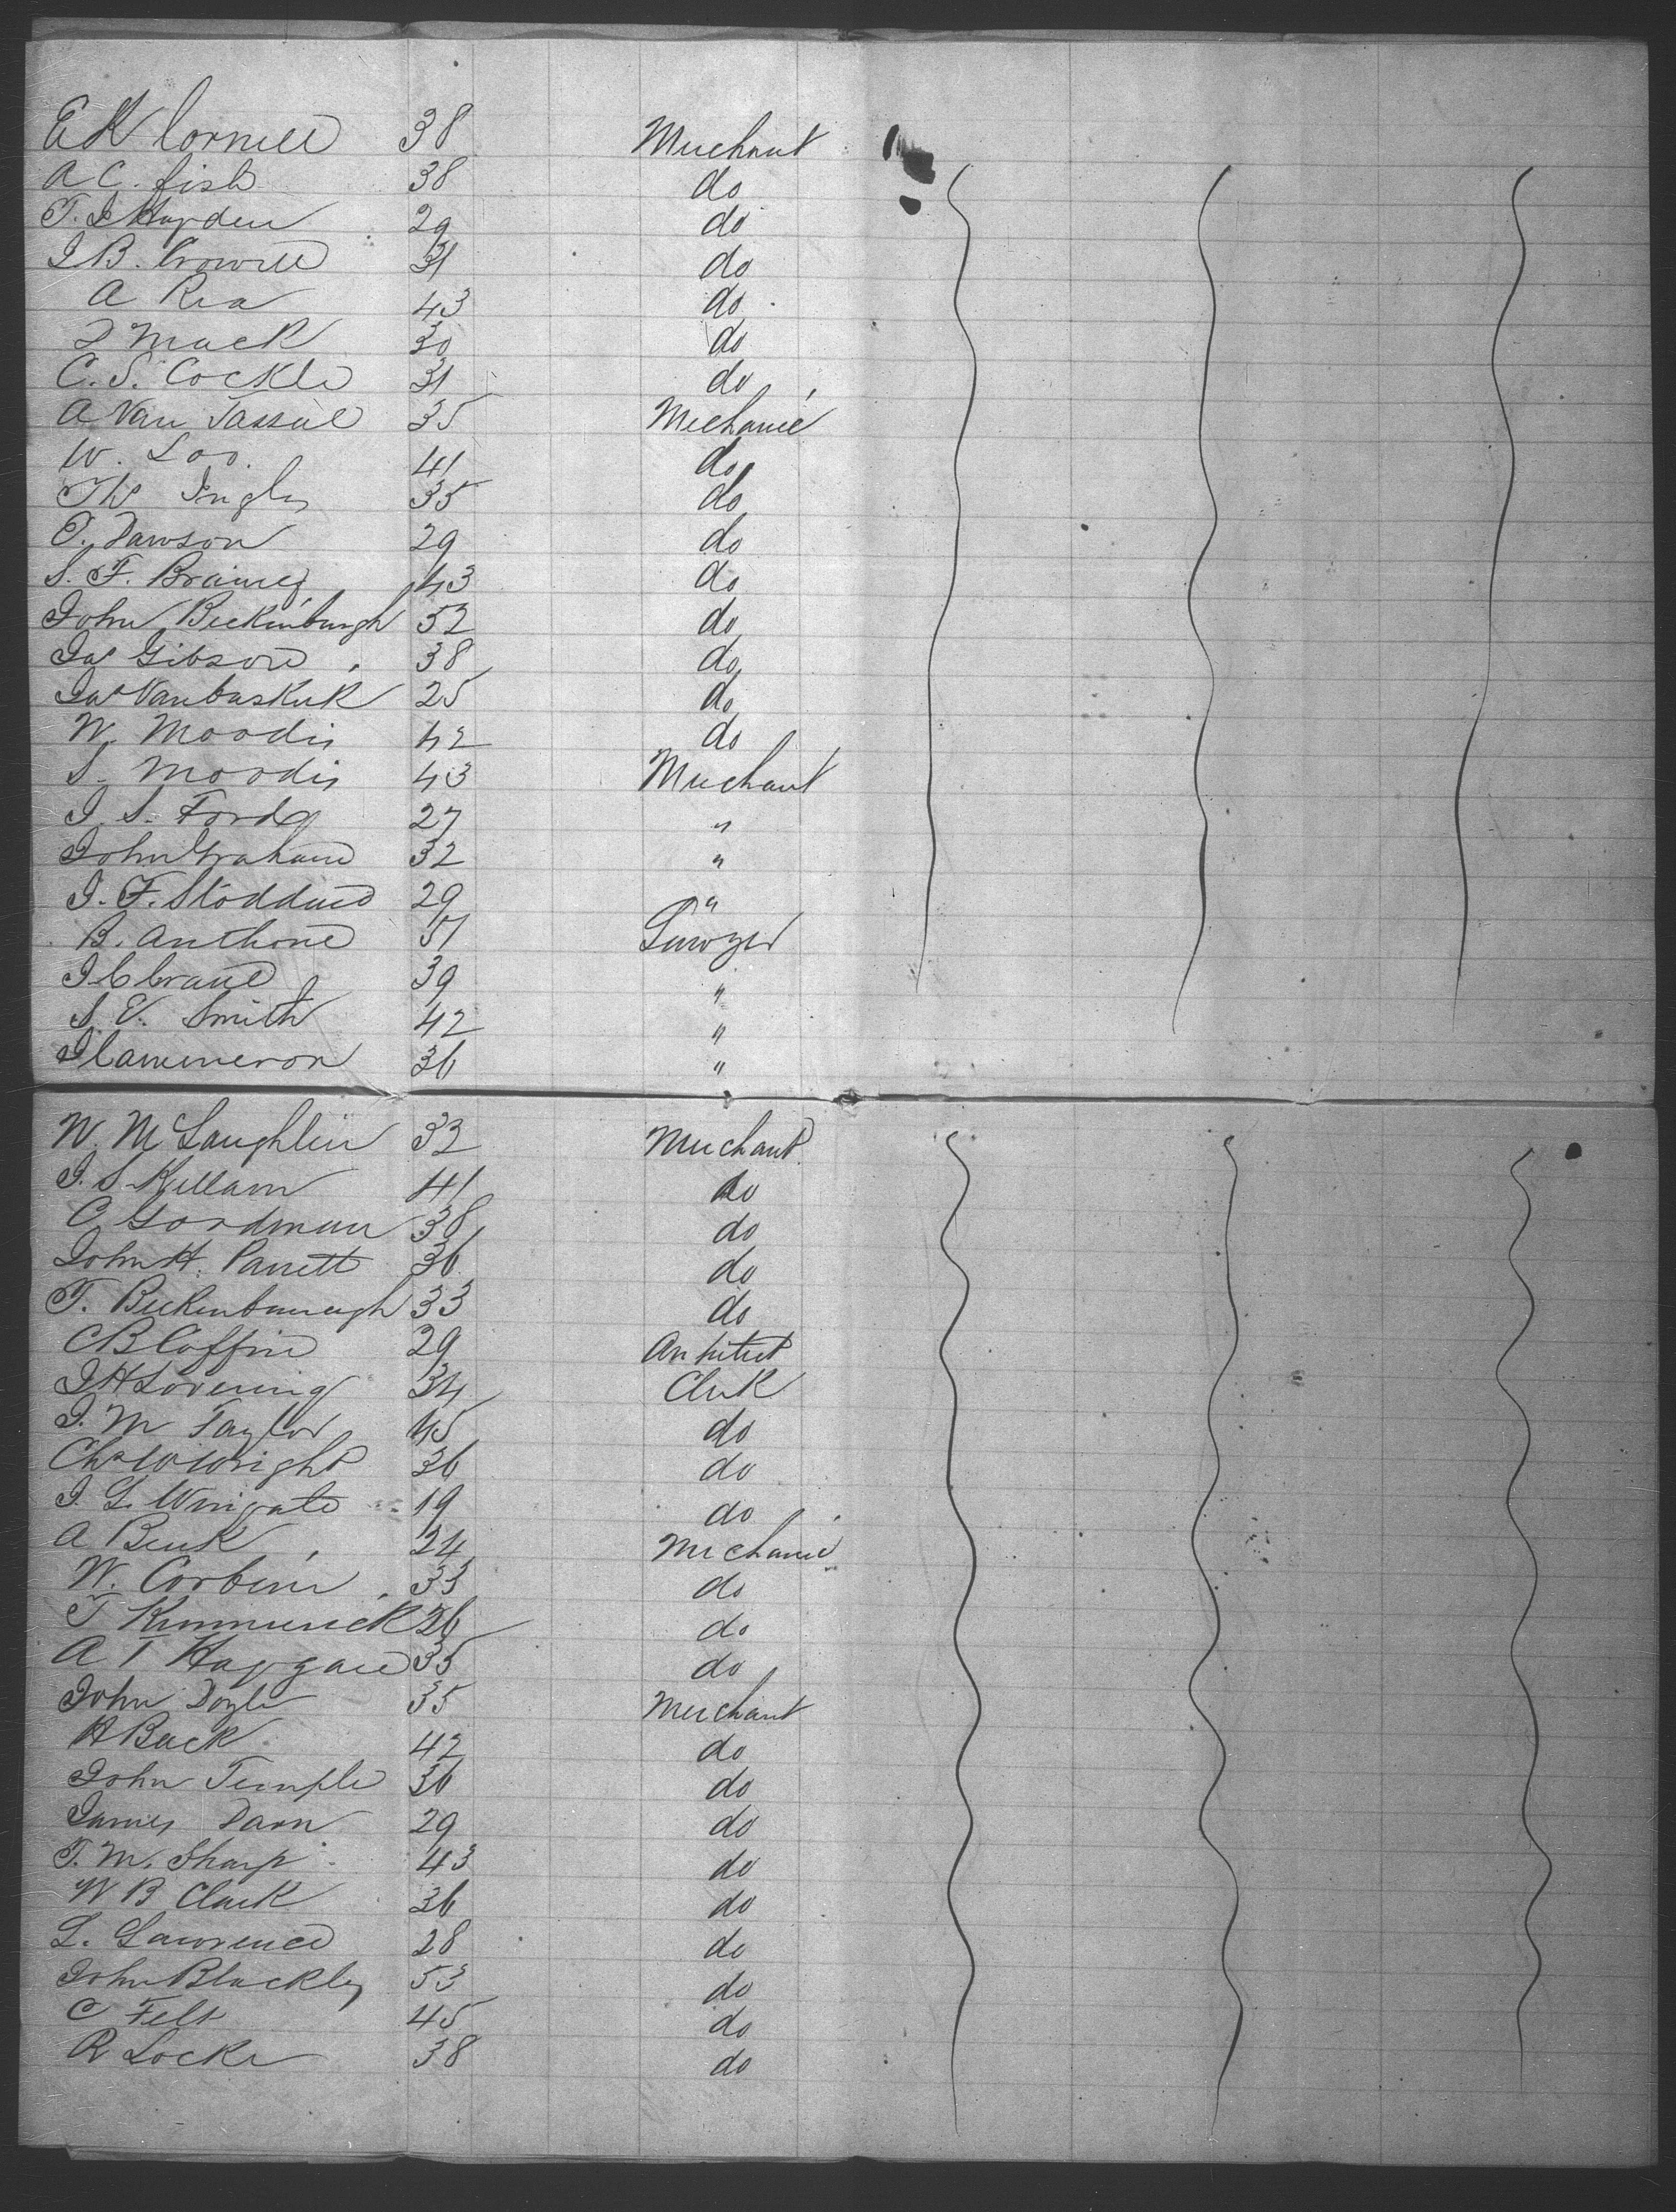 E K Cornell 38 Merchant
A C. Fish 38 do
T. J Hayden 29 do
J B. Crowell 31 do
A Rea 43 do
D Mack 30 do
C. S. Cockle 31 do
A Van Tassel 35 Mechanic
W. Loo. 41 do
Ths Ingles 35 do
O. Dawson 29 do
S. F. Brainey 43 do
John Beckinbaugh 52 do
Jas Gibson 38 do
Jas Vanbuskirk 25 do
W. Moodis 42 do
S. Moodis 43 Merchant
J. S. Ford 27 "
John Graham 32 "
J. F. Stoddard 29 "
B. Anthone 51 Lawyer
J C Crane 39 "
S. E. Smith 42 "
J Cammeron 36 "
W. McLaughlin 32 Merchant
J. S. Killam 41 do
C Goodman 38 do
John H. Parrett 36 do
T. Beckenbaugh 33 do
C B Coffin 29 Architect
J H Lovering 34 Clerk
J. M Taylor 45 do
Chs W Wright 36 do
J. L. Wingate 19 do
A Benk 24 Mechanic
W. Corbin 33 do
T Kimmerick 26 do
A T Haggard 35 do
John Doyle 35 Merchant
H Back 42 do
John Temple 36 do
James Dorn 29 do
T. M. Sharp 43 do
W B Clark 36 do
L. Lawrence 28 do
John Blackley 53 do
C Felt 45 do
R Locke 38 do